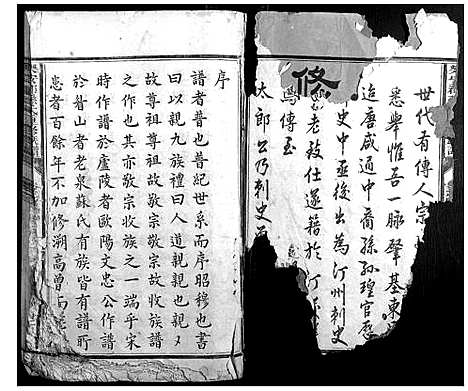 世代有傳人宗
悉舉惟吾一脉肇基東
迨唐咸通中裔孫孙瑝官歷
史中丞後出為汀州刺史
老致仕遂籍於汀
傳至
太郎公乃刺史
修
序
譜者普也普紀世系而序昭穆也書
曰以親九族禮曰人道親親也親〻
故尊祖尊祖故敬宗敬宗故收族譜
之作也其亦敬宗收族之一端乎宋
時作譜於廬陵者歐陽文忠公作譜
於眉山者老泉蘇氏有族皆有譜所
患者百餘年不加修溯高曾而